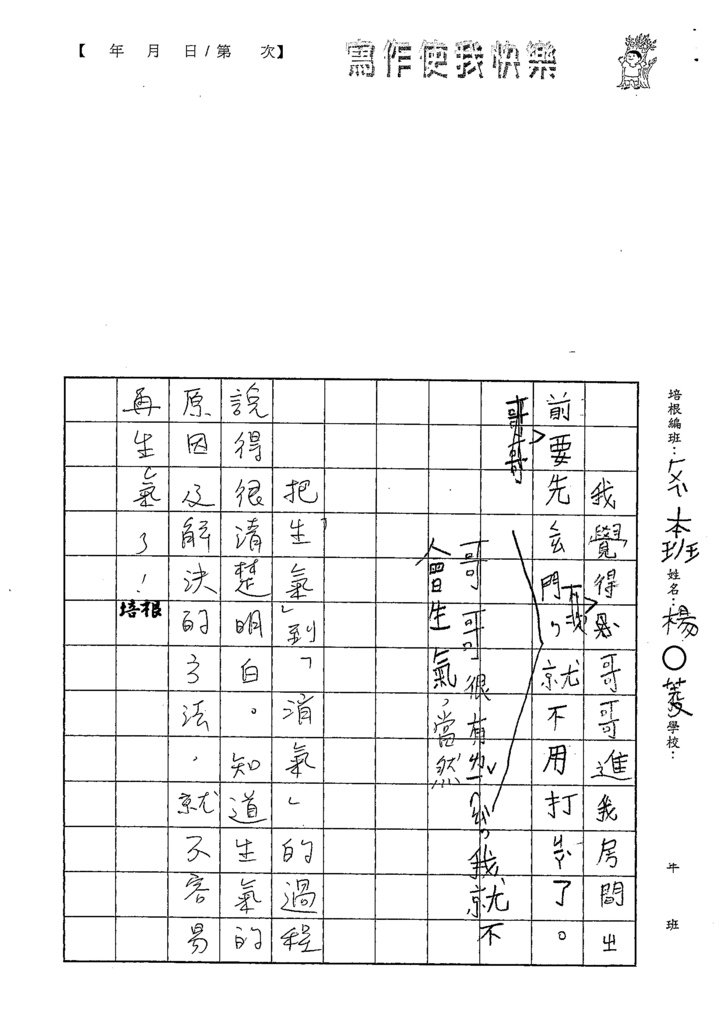 【 年 月 日/第 次】
寫作使我快樂
培根編班：ㄊㄨ本班 姓名：楊○菱 學校： 年 班
我覺得哥哥進我房間
前要先ㄑ門，我就不用打
了。
哥哥
哥哥很有ㄌㄧ
我就不
會生氣，當然
把「生氣」到「消氣」的過程
說得很清楚明白。知道生氣的
原因及解決的方法，就不容易
再生氣了！
培根